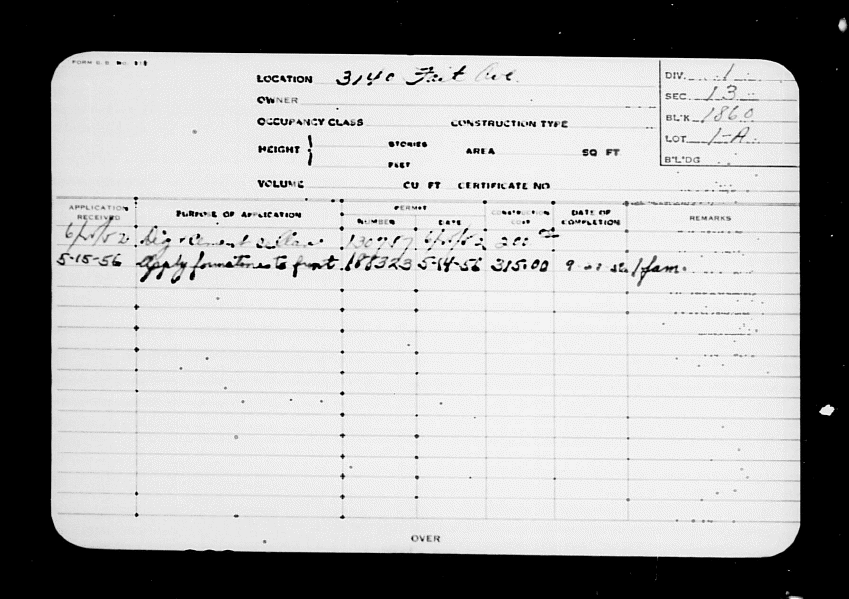 FORM B.B. No. 818
LOCATION 3140 Fait Ave.
DIV. 1
OWNER
SEC. 13
OCCUPANCY CLASS CONSTRUCTION TYPE
BL'K 1860
HEIGHT STORIES AREA SQ FT
LOT 1-A
FEET
B'L'DG
VOLUME CU FT CERTIFICATE NO
APPLICATION RECEIVED PURPOSE OF APPLICATION PERMIT NUMBER DATE CONSTRUCTION COST DATE OF COMPLETION REMARKS
Dig & Cement Cellar 200
5-15-56 Apply formstone to front 188323 5-14-56 315.00 1 fam.
OVER